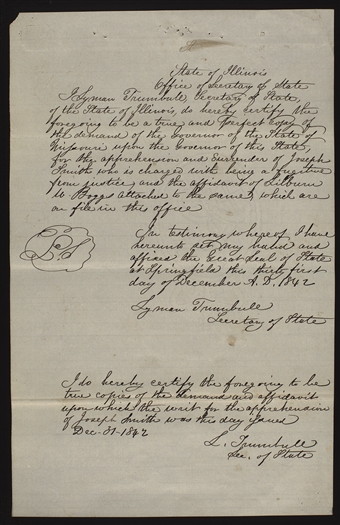 State of Illinois
Office of Secretary of State
I Lyman Trumbull, Secretary of State,
of the State of Illinois, do hereby certify the
foregoing to be a true, and perfect copy of
the demand of the Governor of the State of
Missouri upon the Governor of this State,
for the apprehension and surrender of Joseph
Smith who is charged with being a fugitive
from justice and the affidavit of Lilburn
W. Boggs attached to the same, which are
on file in this office
In testimony whereof I have
hereunto set my hand and
affixed the Great Seal of State
at Springfield this thirty first
day of December A.D. 1842
LS
Lyman Trumbull
Secretary of State
I do hereby certify the foregoing to be
true copies of the demand and affidavit
upon which the writ for the apprehension
of Joseph Smith was this day issued
Dec. 31 - 1842
L. Trumbull
Sec. of State